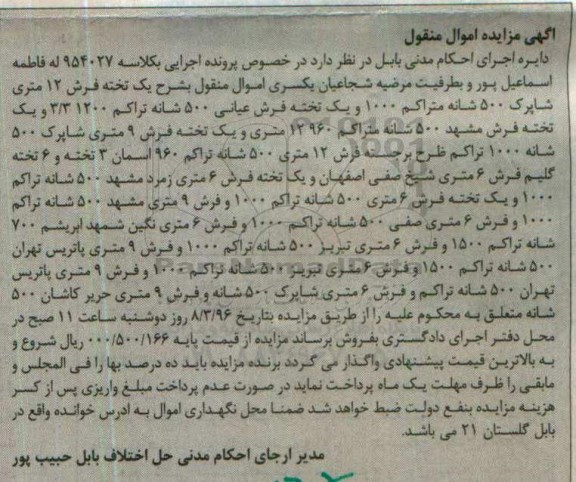 اگهی مزایده اموال منقول
دایره اجرای احکام مدنی بابل در نظر دارد در خصوص پرونده اجرایی بکلاسه ۹۵۴۰۲۷ له فاطمه
اسماعیل پور و بطرفیت مرضیه شجاعیان یکسری اموال منقول بشرح یک تخته فرش ۱۲ متری
شاپرک ۵۰۰ شانه متراکم ۱۰۰۰ و یک تخته فرش عیانی ۵۰۰ شانه تراکم ۱۲۰۰ ۳/۳ و یک
تخته فرش مشهد ۵۰۰ شانه متراکم ۹۶۰ ۱۲ متری و یک تخته فرش ۹ متری شاپرک ۵۰۰
شانه ۱۰۰۰ تراکم طرح برجسته فرش ۱۲ متری ۵۰۰ شانه تراکم ۹۶۰ اسمان ۳ تخته و ۶ تخته
گلیم فرش ۶ متری شیخ صفی اصفهان و یک تخته فرش ۶ متری زمرد مشهد ۵۰۰ شانه تراکم
۱۰۰۰ و یک تخته فرش ۶ متری ۵۰۰ شانه تراکم ۱۰۰۰ و فرش ۹ متری مشهد ۵۰۰ شانه تراکم
۱۰۰۰ و فرش ۶ متری صفی ۵۰۰ شانه تراکم ۱۰۰۰ و فرش ۶ متری نگین شمهد ابریشم ۷۰۰
شانه تراکم ۱۵۰۰ و فرش ۶ متری تبریز ۵۰۰ شانه تراکم ۱۰۰۰ و فرش ۹ متری پاتریس تهران
۵۰۰ شانه تراکم ۱۵۰۰ و فرش ۶ متری تبریز ۵۰۰ شانه تراکم ۱۰۰۰ و فرش ۹ متری پاتریس
تهران ۵۰۰ شانه تراکم و فرش ۶ متری شاپرک ۵۰۰ شانه و فرش ۹ متری حریر کاشان ۵۰۰
شانه متعلق به محکوم علیه را از طریق مزایده بتاریخ ۸/۳/۹۶ روز دوشنبه ساعت ۱۱ صبح در
محل دفتر اجرای دادگستری بفروش برساند مزایده از قیمت پایه ۰۰۰/۵۰۰/۱۶۶ ریال شروع و
به بالاترین قیمت پیشنهادی واگذار می گردد برنده مزایده باید ده درصد بها را فی المجلس و
مابقی را ظرف مهلت یک ماه پرداخت نماید در صورت عدم پرداخت مبلغ واریزی پس از کسر
هزینه مزایده بنفع دولت ضبط خواهد شد ضمنا محل نگهداری اموال به ادرس خوانده واقع در
بابل گلستان ۲۱ می باشد.
مدیر ارجای احکام مدنی حل اختلاف بابل حبیب پور